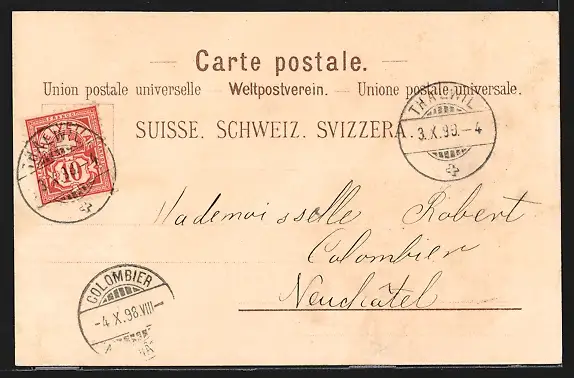 Carte postale.
Union postale universelle — Weltpostverein. — Unione postale universale.
SUISSE. SCHWEIZ. SVIZZERA.
THALWIL
3.X.98.–4
10
Mademoiselle Robert
Colombier
Neuchâtel
COLOMBIER
–4.X.98.VIII–